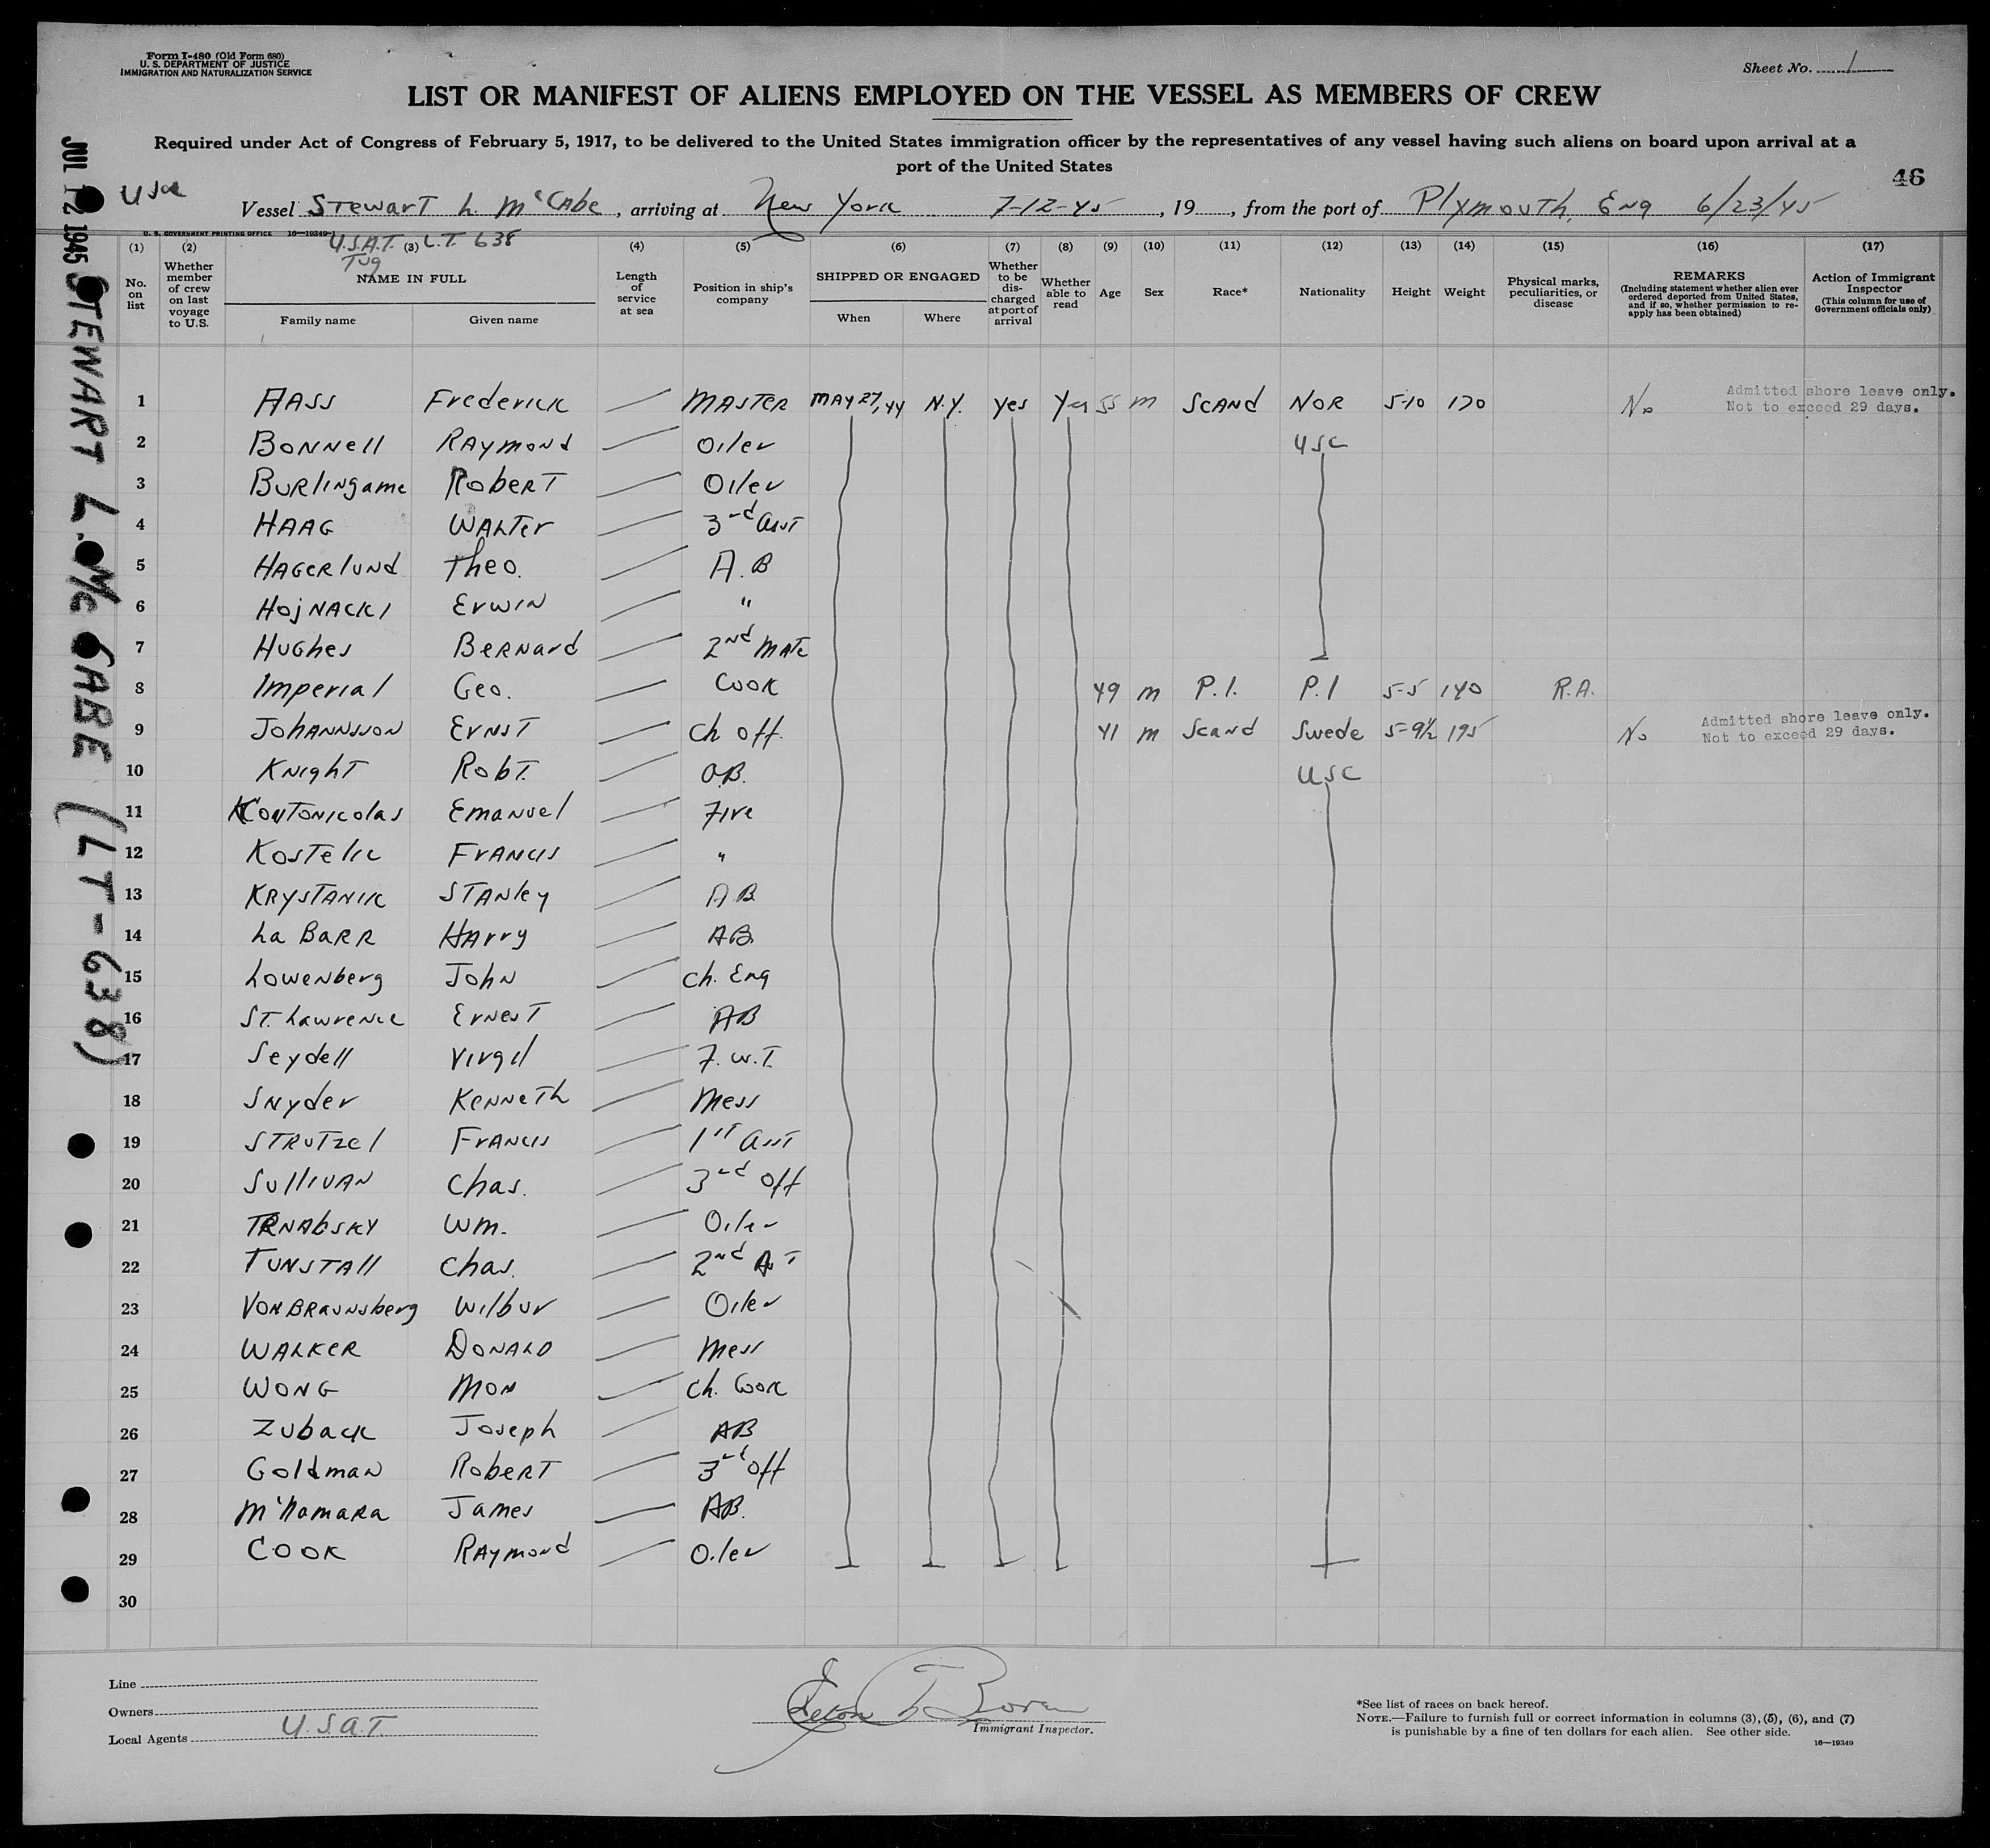 Form I-480 (Old Form 680)
U. S. DEPARTMENT OF JUSTICE
IMMIGRATION AND NATURALIZATION SERVICE
Sheet No. 1
LIST OR MANIFEST OF ALIENS EMPLOYED ON THE VESSEL AS MEMBERS OF CREW
Required under Act of Congress of February 5, 1917, to be delivered to the United States immigration officer by the representatives of any vessel having such aliens on board upon arrival at a
port of the United States
46
Vessel Stewart L. McCabe, arriving at New York 7-12-45, 19, from the port of Plymouth, Eng 6/23/45
U. S. GOVERNMENT PRINTING OFFICE 16—19349-1
U.S.A.T. L.T. 638
Tug
JUL 12 1945 STEWART L. Mc CABE (LT-638)
(1) (2) (3) (4) (5) (6) (7) (8) (9) (10) (11) (12) (13) (14) (15) (16) (17)
No. on list
Whether member of crew on last voyage to U.S.
NAME IN FULL
Family name Given name
Length of service at sea
Position in ship's company
SHIPPED OR ENGAGED
When Where
Whether to be discharged at port of arrival
Whether able to read
Age
Sex
Race*
Nationality
Height
Weight
Physical marks, peculiarities, or disease
REMARKS
(Including statement whether alien ever ordered deported from United States, and if so, whether permission to reapply has been obtained)
Action of Immigrant Inspector
(This column for use of Government officials only)
1 AASS Frederick — MASTER MAY 27, 44 N.Y. Yes Yes 55 m SCAND NOR 5-10 170 No Admitted shore leave only.
Not to exceed 29 days.
2 Bonnell Raymond — Oiler USC
3 Burlingame Robert — Oiler
4 HAAG Walter — 3rd Asst
5 Hagerlund Theo. — A.B
6 Hojnacki Erwin — "
7 Hughes Bernard — 2nd Mate
8 Imperial Geo. — Cook 49 m P.I. P.I 5-5 140 R.A.
9 Johannsson Ernst — Ch Off. 41 m Scand Swede 5-9½ 195 No Admitted shore leave only.
Not to exceed 29 days.
10 Knight Robt. — O.B. USC
11 Koutonicolas Emanuel — Fire
12 Kostelic Francis — "
13 Krystanik Stanley — A.B
14 La Barr Harry — AB.
15 Lowenberg John — Ch. Eng
16 St. Lawrence Ernest — AB
17 Seydell Virgil — F.W.T.
18 Snyder Kenneth — Mess
19 Strutzel Francis — 1st Asst
20 Sullivan Chas. — 3rd Off
21 Trnabsky Wm. — Oiler
22 Tunstall Chas. — 2nd
23 Von Braunsberg Wilbur — Oiler
24 Walker Donald — Mess
25 Wong Mon — Ch. Cook
26 Zuback Joseph — AB
27 Goldman Robert — 3rd Off
28 McNamara James — AB.
29 Cook Raymond — Oiler
30
Line
Owners
Local Agents U.S.A.T.
Immigrant Inspector.
*See list of races on back hereof.
NOTE.—Failure to furnish full or correct information in columns (3), (5), (6), and (7)
is punishable by a fine of ten dollars for each alien. See other side.
16—19349